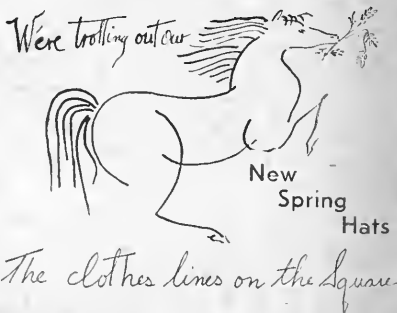 We're trotting out our
New
Spring
Hats
The clothes lines on the Square